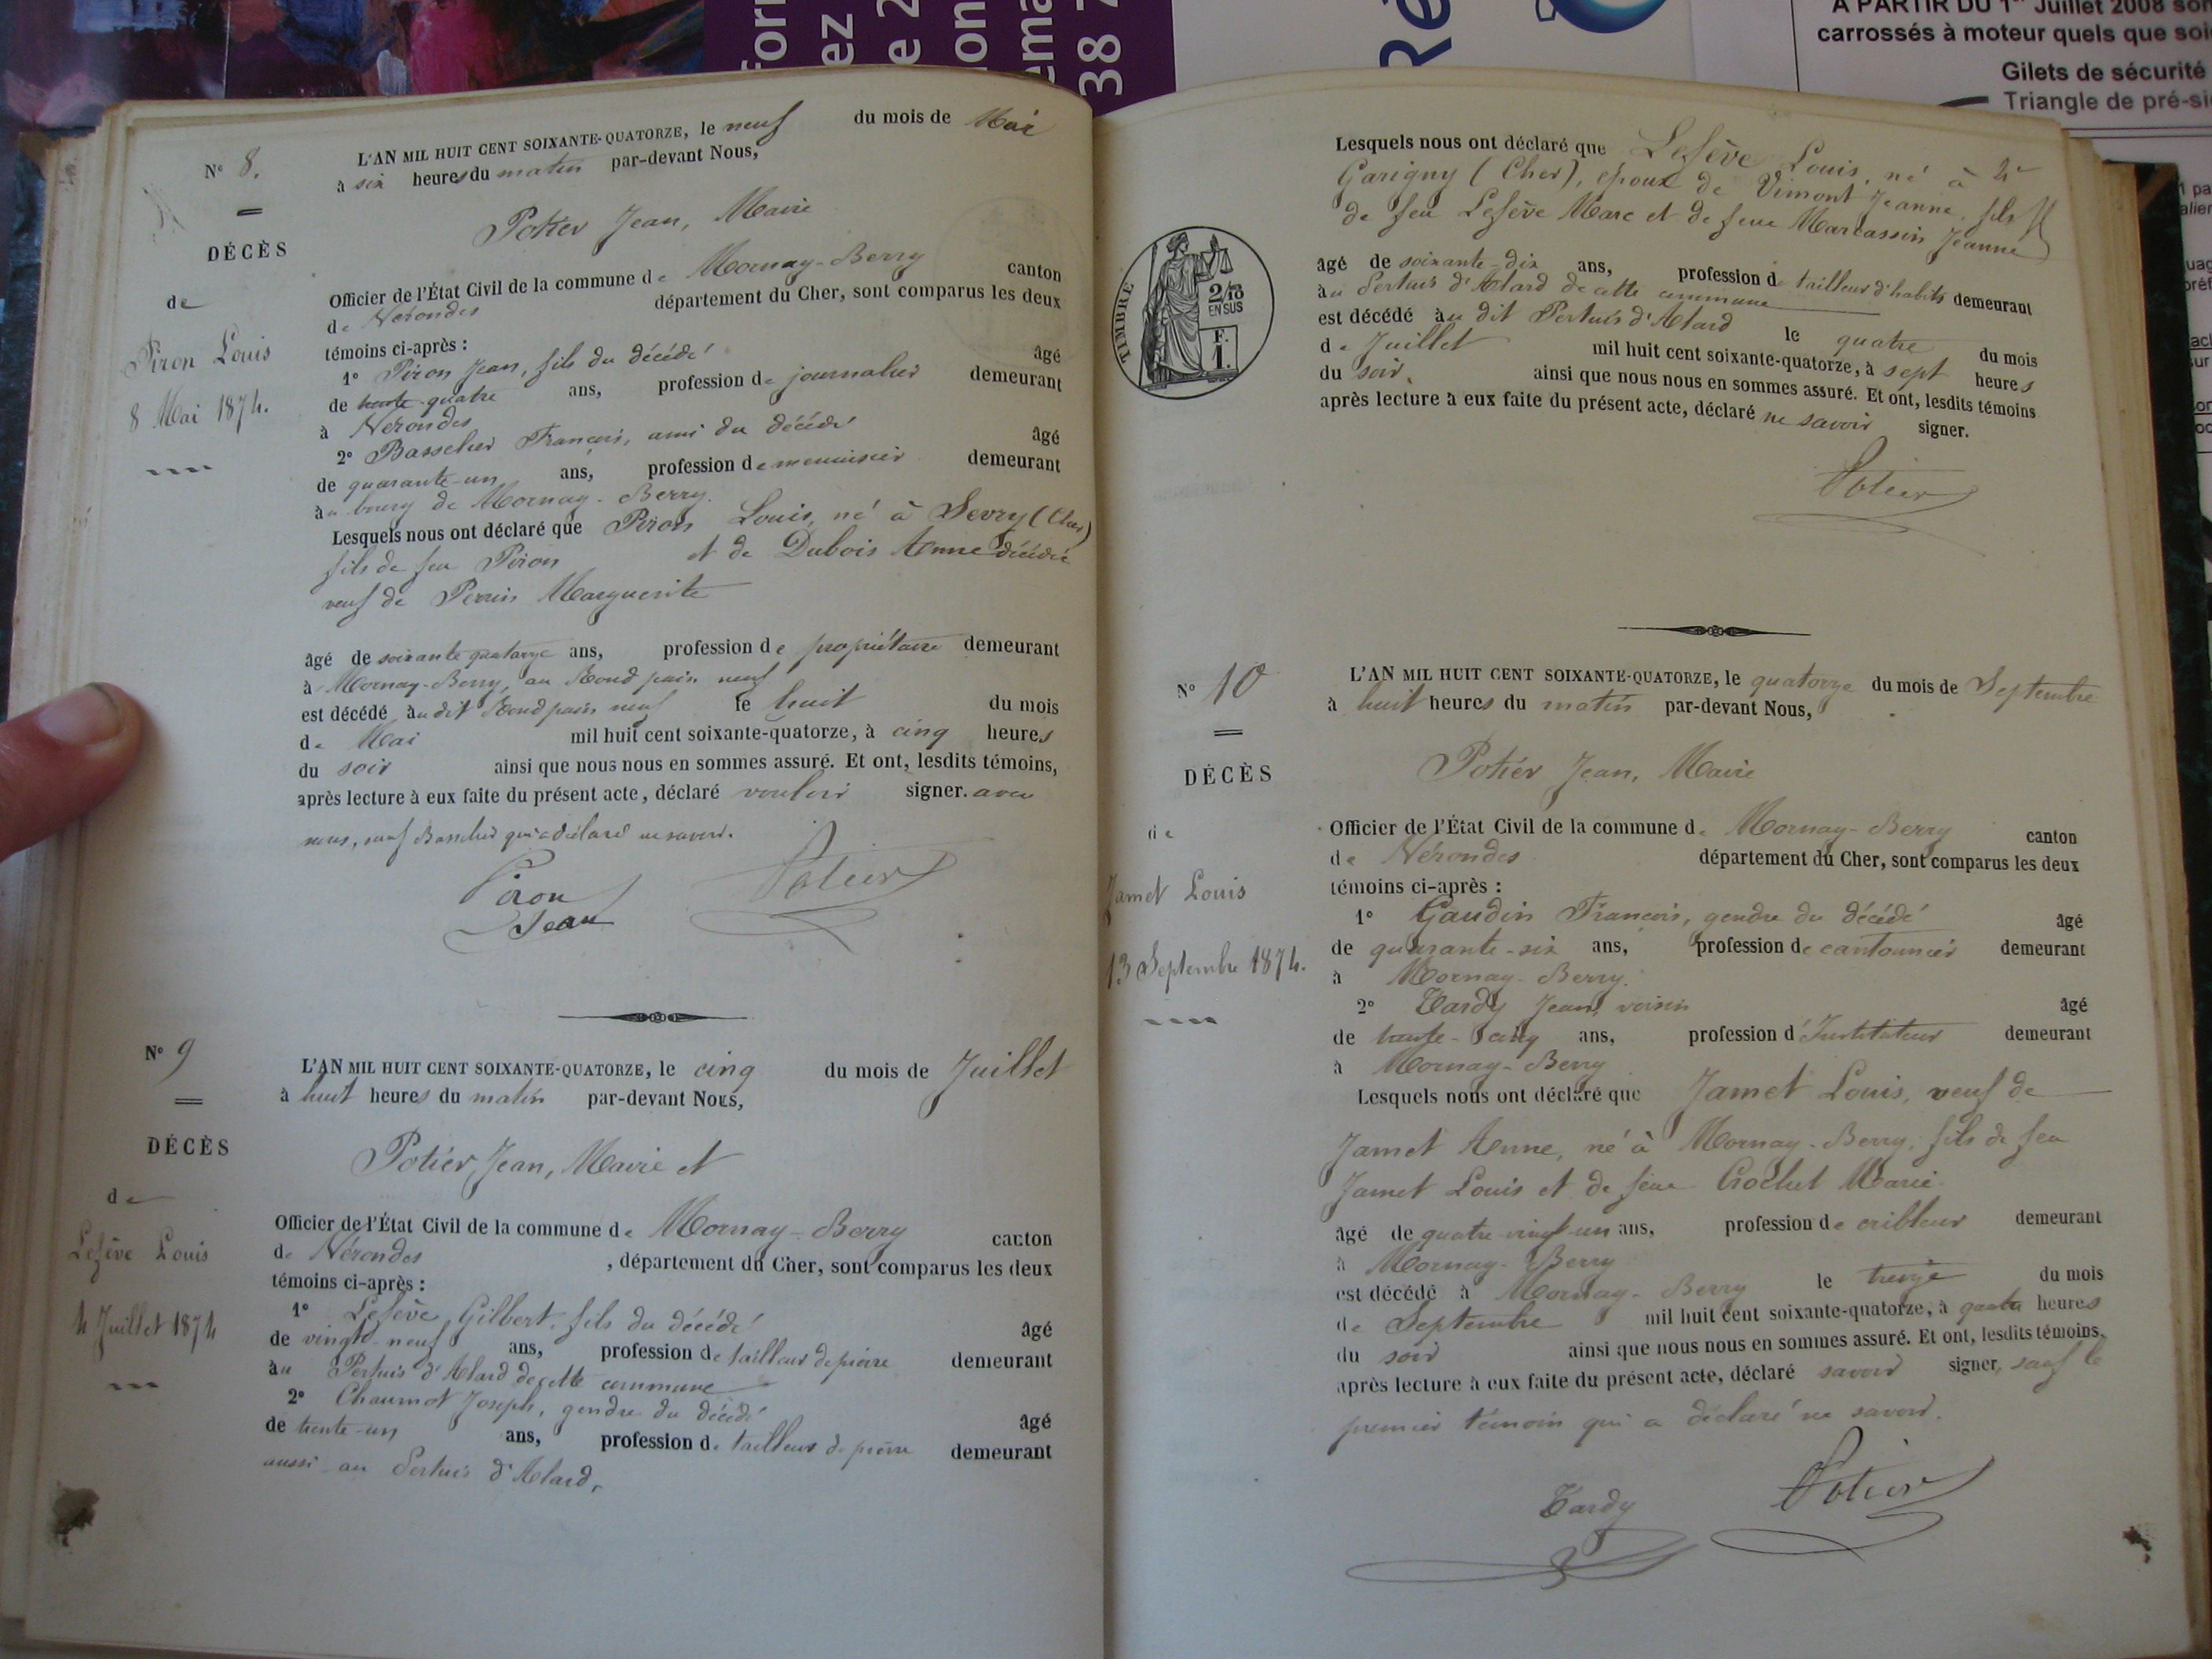 form
ez
e 2
ion
ema
38 7
Ré
A PARTIR DU 1er Juillet 2008 son
carrossés à moteur quels que soi
Gilets de sécurité
Triangle de pré-si
N° 8.
DÉCÈS
de
Piron Louis
8 Mai 1874.
L'AN MIL HUIT CENT SOIXANTE-QUATORZE, le neuf du mois de Mai
à six heures du matin par-devant Nous,
Potier Jean, Maire
Officier de l'État Civil de la commune de Mornay-Berry canton
de Nérondes département du Cher, sont comparus les deux
témoins ci-après :
1° Piron Jean, fils du décédé âgé
de trente-quatre ans, profession de journalier demeurant
à Nérondes
2° Basselier François, ami du décédé âgé
de quarante-un ans, profession de menuisier demeurant
au bourg de Mornay-Berry.
Lesquels nous ont déclaré que Piron Louis, né à Sevry (Cher)
fils de feu Piron et de Dubois Anne décédée
veuf de Perrin Marguerite
âgé de soixante quatorze ans, profession de propriétaire demeurant
à Mornay-Berry, au Rond pain neuf
est décédé au dit Rond pain neuf le huit du mois
de Mai mil huit cent soixante-quatorze, à cinq heures
du soir ainsi que nous nous en sommes assuré. Et ont, lesdits témoins,
après lecture à eux faite du présent acte, déclaré vouloir signer. avec
nous, sauf Basselier qui a déclaré ne savoir.
Piron Potier
Jean
N° 9
DÉCÈS
de
Lefève Louis
4 Juillet 1874
L'AN MIL HUIT CENT SOIXANTE-QUATORZE, le cinq du mois de Juillet
à huit heures du matin par-devant Nous,
Potier Jean, Maire et
Officier de l'État Civil de la commune de Mornay-Berry canton
de Nérondes , département du Cher, sont comparus les deux
témoins ci-après :
1° Lefève Gilbert, fils du décédé âgé
de vingt-neuf ans, profession de tailleur de pierre demeurant
au Pertuis d'Alard de cette commune
2° Chaumot Joseph, gendre du décédé âgé
de trente-un ans, profession de tailleur de pierre demeurant
aussi au Pertuis d'Alard,
Lesquels nous ont déclaré que Lefève Louis, né à
Garigny (Cher), époux de Vimont Jeanne, fils
de feu Lefève Marc et de feue Marcassin Jeanne
âgé de soixante-dix ans, profession de tailleur d'habits demeurant
au Pertuis d'Alard de cette commune
est décédé au dit Pertuis d'Alard le quatre du mois
de Juillet mil huit cent soixante-quatorze, à sept heures
du soir, ainsi que nous nous en sommes assuré. Et ont, lesdits témoins
après lecture à eux faite du présent acte, déclaré ne savoir signer.
Potier
TIMBRE
2/10
EN SUS
F.
1.
N° 10
DÉCÈS
de
Jamet Louis
13 Septembre 1874.
L'AN MIL HUIT CENT SOIXANTE-QUATORZE, le quatorze du mois de Septembre
à huit heures du matin par-devant Nous,
Potier Jean, Maire
Officier de l'État Civil de la commune de Mornay-Berry canton
de Nérondes département du Cher, sont comparus les deux
témoins ci-après :
1° Gaudin François, gendre du décédé âgé
de quarante-six ans, profession de cantonnier demeurant
à Mornay-Berry.
2° Tardy Jean, voisin âgé
de trente-cinq ans, profession d'Instituteur demeurant
à Mornay-Berry
Lesquels nous ont déclaré que Jamet Louis, veuf de
Jamet Anne, né à Mornay-Berry, fils de feu
Jamet Louis et de feue Crochet Marie
âgé de quatre-vingt-un ans, profession de cribleur demeurant
à Mornay-Berry
est décédé à Mornay-Berry le treize du mois
de Septembre mil huit cent soixante-quatorze, à quatre heures
du soir ainsi que nous nous en sommes assuré. Et ont, lesdits témoins,
après lecture à eux faite du présent acte, déclaré savoir signer, sauf le
premier témoin qui a déclaré ne savoir.
Tardy Potier